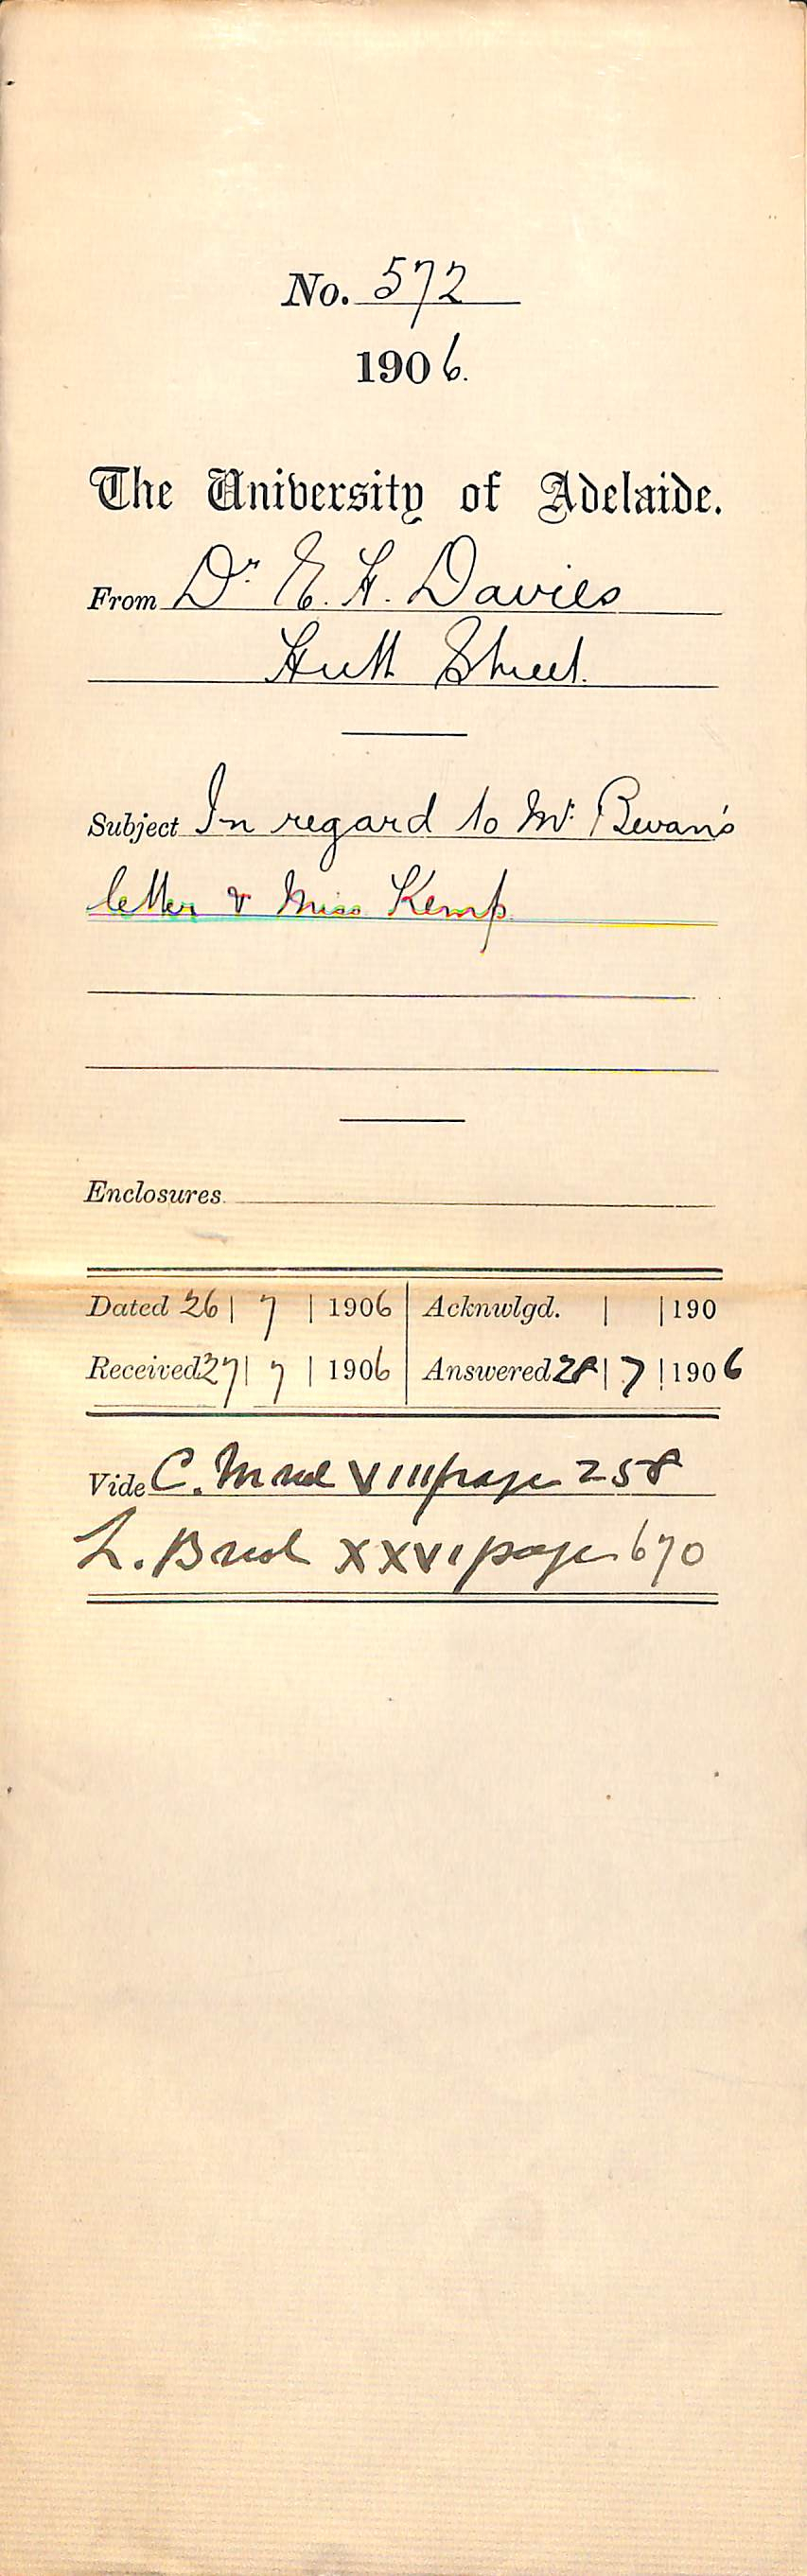 No. 572
1906.
The University of Adelaide.
From Dr. E. H. Davies
Hutt Street.
Subject In regard to Mr. Bevan's
letter & Miss Kemp
Enclosures
Dated 26 | 7 | 1906 Acknwlgd. | | 190
Received 27 | 7 | 1906 Answered 28 | 7 | 1906
Vide C. M VIII page 258
L. B XXVI page 670